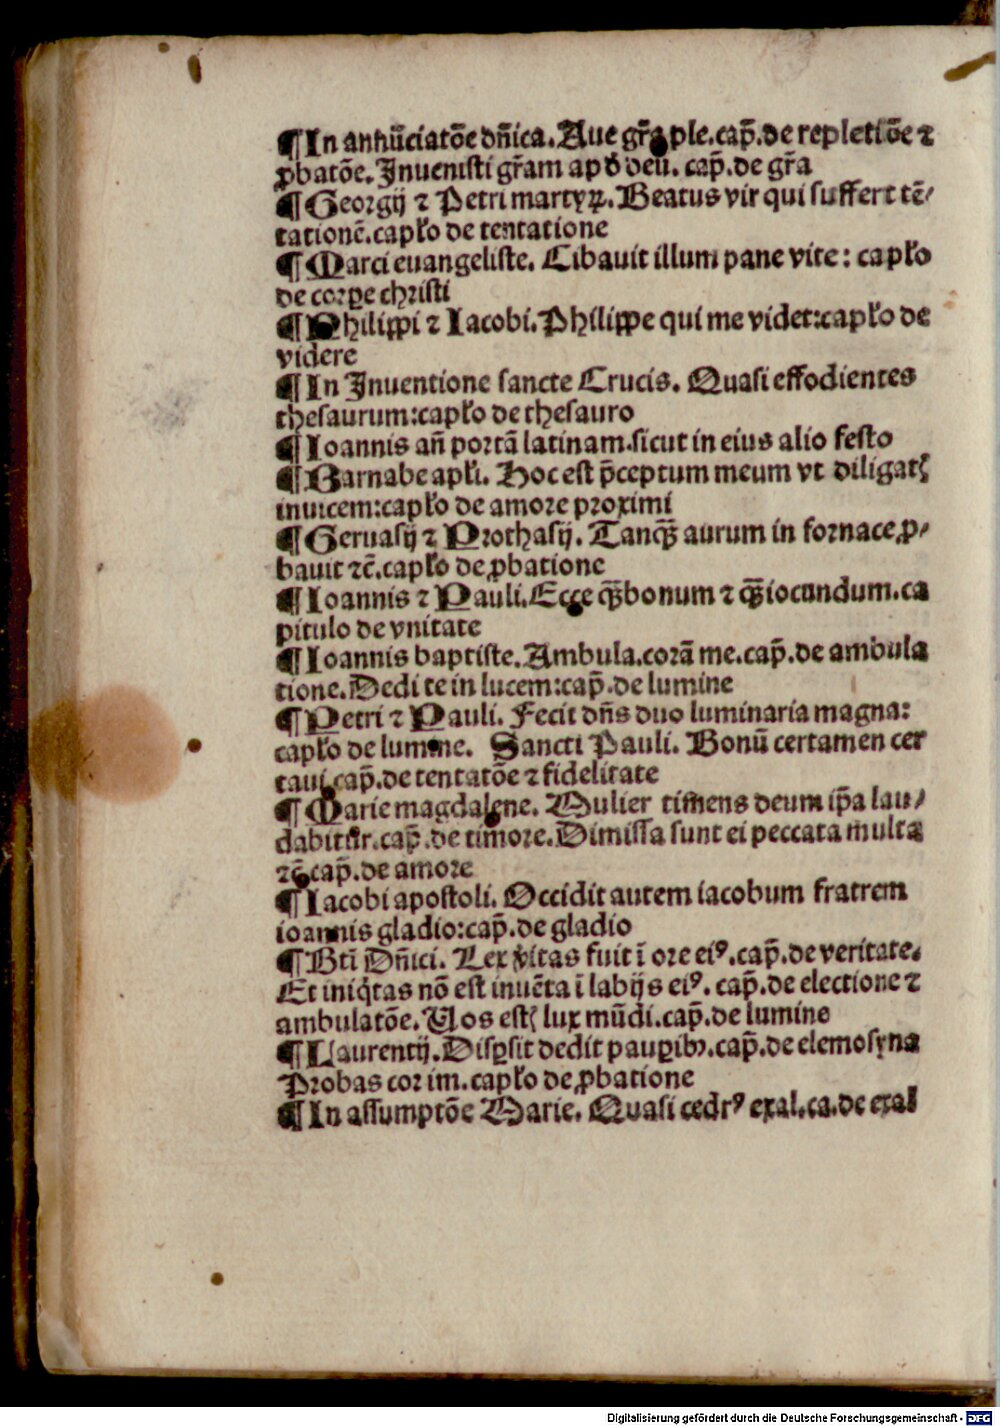 ¶ In annũciatõe dñica. Aue gr̃a ple. cap̃. de repletiõe ⁊
ꝓbatõe. Inuenisti gr̃am apď deũ. cap̃. de gr̃a
¶ Georgij ⁊ Petri martyꝝ. Beatus vir qui suffert tẽ⸗
tationẽ. capło de tentatione
¶ Marci euangeliste. Cibauit illum pane vite: capło
de corꝑe christi
¶ Philippi ⁊ Iacobi. Philippe qui me videt: capło de
videre
¶ In Inuentione sancte Crucis. Quasi effodientes
thesaurum: capło de thesauro
¶ Ioannis añ portã latinam. sicut in eius alio festo
¶ Barnabe apłi. Hoc est p̃ceptum meum vt diligatꝭ
inuicem: capło de amore proximi
¶ Geruasij ⁊ Prothasij. Tanqꝫ̃ aurum in fornace ꝓ⸗
bauit ⁊c̃. capło de ꝓbatione
¶ Ioannis ⁊ Pauli. Ecce qꝫ̃ bonum ⁊ qꝫ̃ iocundum. ca
pitulo de vnitate
¶ Ioannis baptiste. Ambula. corã me. cap̃. de ambula
tione. Dedi te in lucem: cap̃. de lumine
¶ Petri ⁊ Pauli. Fecit dñs duo luminaria magna:
capło de lumine. Sancti Pauli. Bonũ certamen cer
taui. cap̃. de tentatõe ⁊ fidelitate
¶ Marie magdalene. Mulier timens deum ip̃a lau⸗
dabitur. cap̃. de timore. Dimissa sunt ei peccata multa
⁊c̃ cap̃. de amore
¶ Iacobi apostoli. Occidit autem iacobum fratrem
ioannis gladio: cap̃. de gladio
¶ Bti Dñici. Lex ṽitas fuit ĩ ore eiꝰ. cap̃. de veritate.
Et iniq̇tas nõ est inuẽta ĩ labijs eiꝰ. cap̃. de electione ⁊
ambulatõe. Uos estꝭ lux mũdi. cap̃. de lumine
¶ Laurentij. Disꝑsit dedit pauꝑibꝫ. cap̃. de elemosyna
Probas cor im. capło de ꝓbatione
¶ In assumptõe Marie. Quasi cedrꝰ exal. ca. de exal
Digitalisierung gefördert durch die Deutsche Forschungsgemeinschaft - DFG